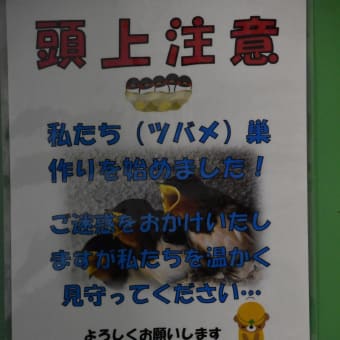 頭上注意
私たち（ツバメ）巣
作りを始めました！
ご迷惑をおかけいたし
ますが私たちを温かく
見守ってください…
よろしくお願いします